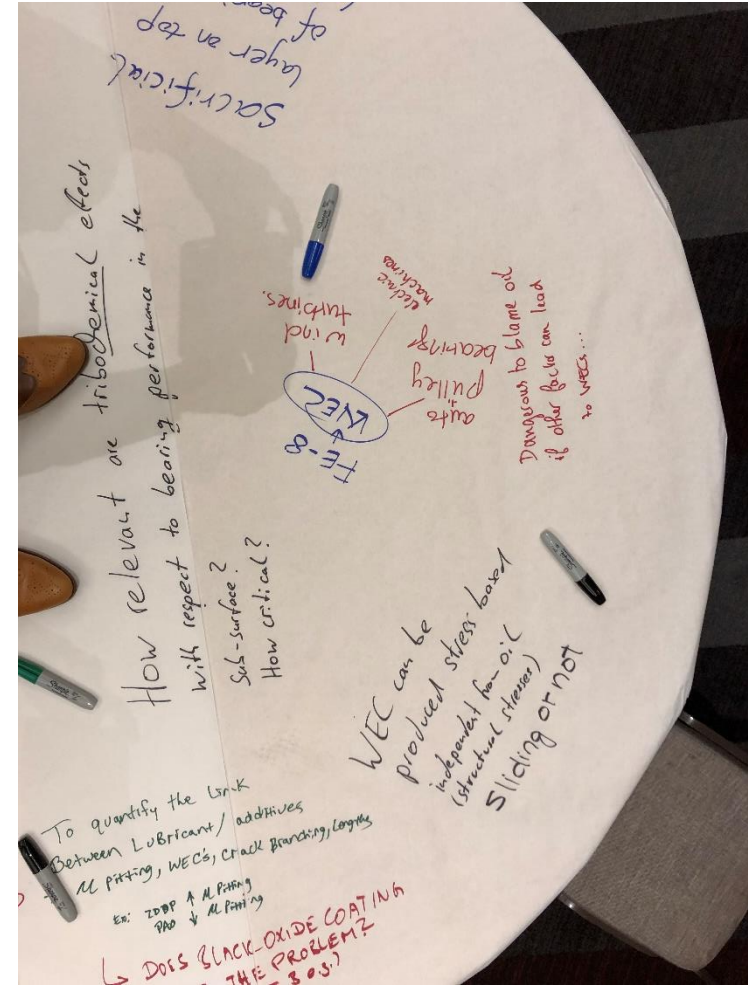 Sacrificial
layer on top
of
How relevant are tribochemical effects
with respect to bearing performance in the
Sub-surface?
How critical?
FE-8
WEC
wind
turbines.
electric
machines
auto
pulley
bearings
Dangerous to blame oil
if other factor can lead
to WECs...
WEC can be
produced stress based
independent from oil
(structural stresses)
Sliding or not
To quantify the Link
Between LuBricant/additives
M Pitting, WEC's, Crack Branching, Lengths
Ex: ZDDP ↑ M Pitting
PAO ↓ M Pitting
↳ DOES BLACK-OXIDE COATING
THE PROBLEM?